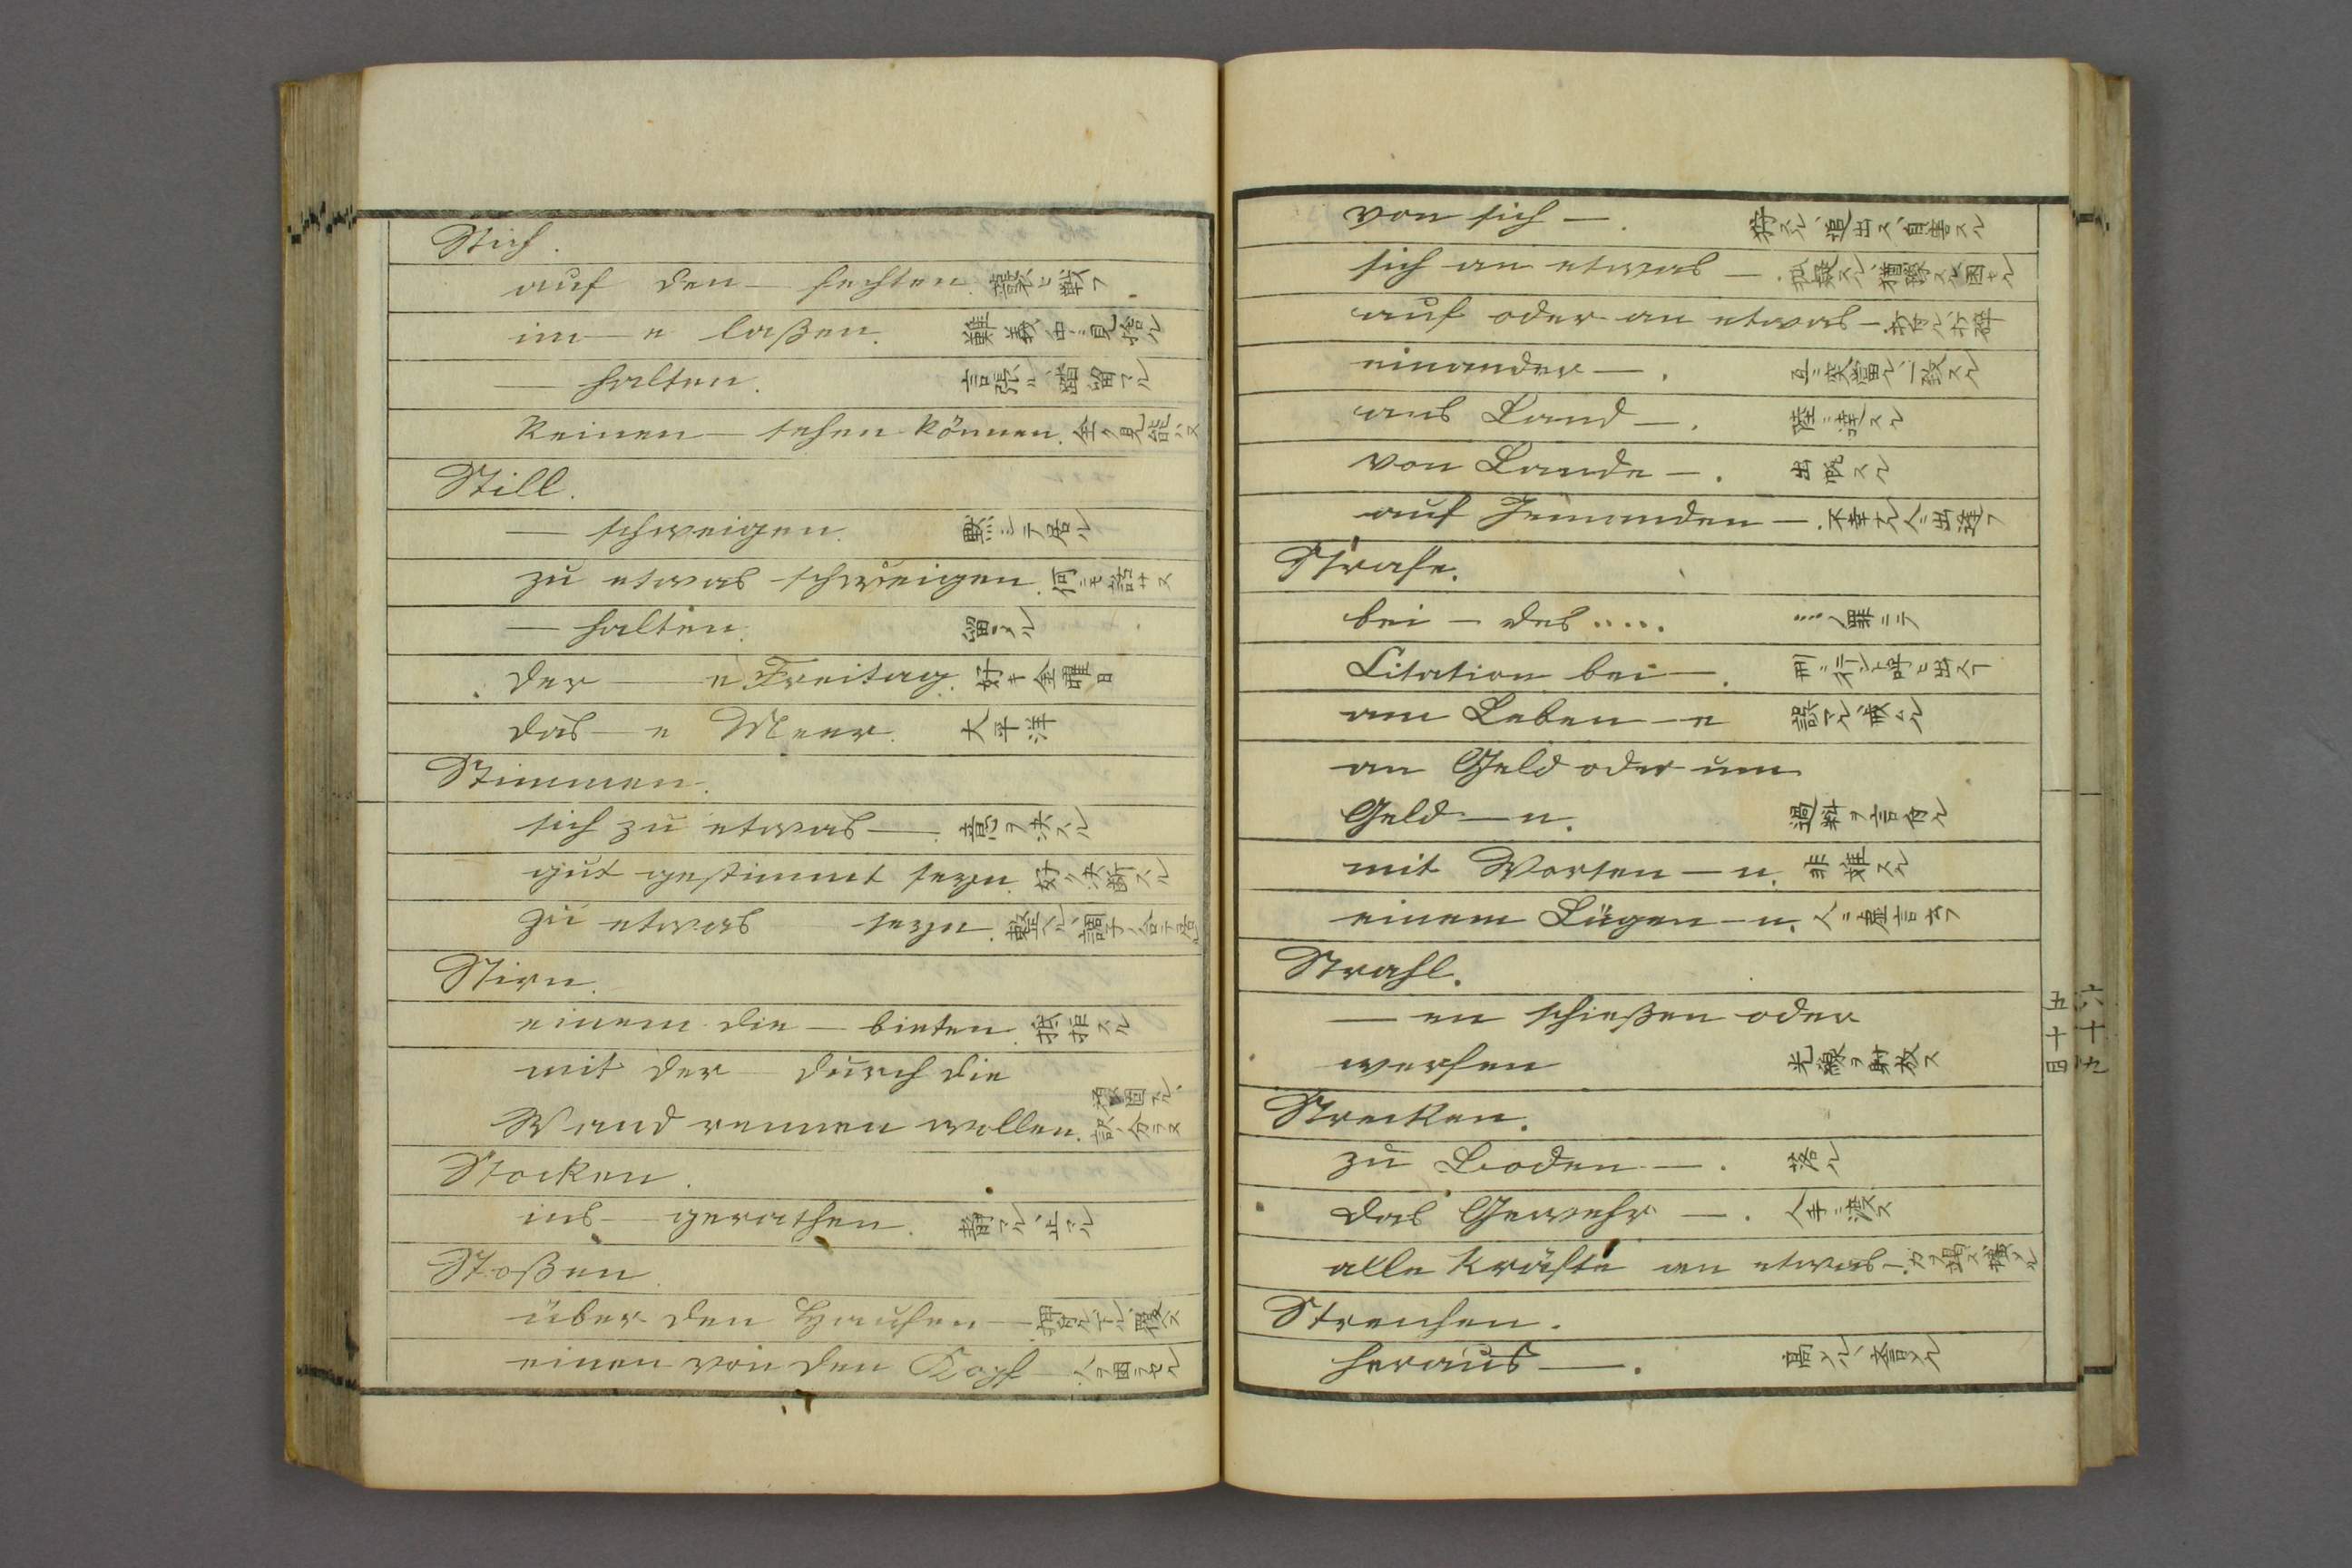 Stich.
auf den — fechten. 譟ヒ戦フ
im — e laßen. 難義ノ中ニ見捨ル
— halten. 言張ル、蹈留マル
keinen — sehen können. 全ク見能ハス
Still.
— schweigen. 黙シテ居ル
zu etwas schweigen. 何ニモ答ヘス
— halten. 留マル
der — e Freitag. 好キ金曜日
das — e Meer. 大平洋
Stimmen.
sich zu etwas —. 意ヲ決スル
gut gestimmt seyn. 好ク決断スル
zu etwas — seyn.
Stirn.
einem die — bieten. 抵拒スル
mit der — durch die
Wand rennen wollen.
Stocken.
ins — gerathen. 静マル、止マル
Stoßen.
über den Haufen —.
einen von den Kopf — 人ヲ困ラセル
von sich —. 追出ス、自害スル
sich an etwas —.
auf oder an etwas —.
einander —. 互ニ突當ル、一致スル
ans Land —. 陸ニ達スル
von Lande —. 出帆スル
auf Jemanden —. 不幸ナル人ニ出逢フ
Strafe.
bei — des ..... ....ノ罪ニテ
Citation bei —.
am Leben — e
an Geld oder um
Geld — n. 過料ヲ言付ル
mit Worten — n. 非難スル
einem Lügen — n. 人ニ虚言ヲ云フ
Strahl.
— en schießen oder
werfen 光線ヲ射放ス
Strecken.
zu Boden —. 落ル
das Gewehr —. 人手ニ渡ス
alle Kräfte an etwas —.
Streichen.
heraus —.
五十四
六十九